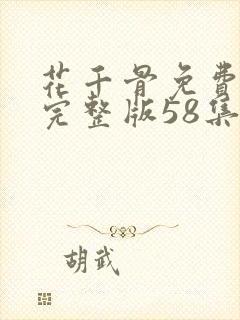 花千骨免費
完整版58集
胡武